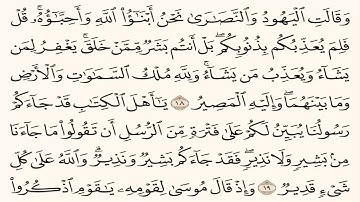 وَقَالَتِ ٱلۡيَهُودُ وَٱلنَّصَٰرَىٰ نَحۡنُ أَبۡنَٰٓؤُاْ ٱللَّهِ وَأَحِبَّٰٓؤُهُۥۚ قُلۡ
فَلِمَ يُعَذِّبُكُم بِذُنُوبِكُمۖ بَلۡ أَنتُم بَشَرٞ مِّمَّنۡ خَلَقَۚ يَغۡفِرُ لِمَن
يَشَآءُ وَيُعَذِّبُ مَن يَشَآءُۚ وَلِلَّهِ مُلۡكُ ٱلسَّمَٰوَٰتِ وَٱلۡأَرۡضِ
وَمَا بَيۡنَهُمَاۖ وَإِلَيۡهِ ٱلۡمَصِيرُ ١٨ يَٰٓأَهۡلَ ٱلۡكِتَٰبِ قَدۡ جَآءَكُمۡ
رَسُولُنَا يُبَيِّنُ لَكُمۡ عَلَىٰ فَتۡرَةٖ مِّنَ ٱلرُّسُلِ أَن تَقُولُواْ مَا جَآءَنَا
مِنۢ بَشِيرٖ وَلَا نَذِيرٖۖ فَقَدۡ جَآءَكُم بَشِيرٞ وَنَذِيرٞۗ وَٱللَّهُ عَلَىٰ كُلِّ
شَيۡءٖ قَدِيرٞ ١٩ وَإِذۡ قَالَ مُوسَىٰ لِقَوۡمِهِۦ يَٰقَوۡمِ ٱذۡكُرُواْ